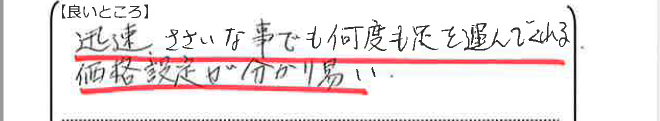 【良いところ】
迅速、ささいな事でも何度も足を運んでくれる。
価格設定が分かり易い.